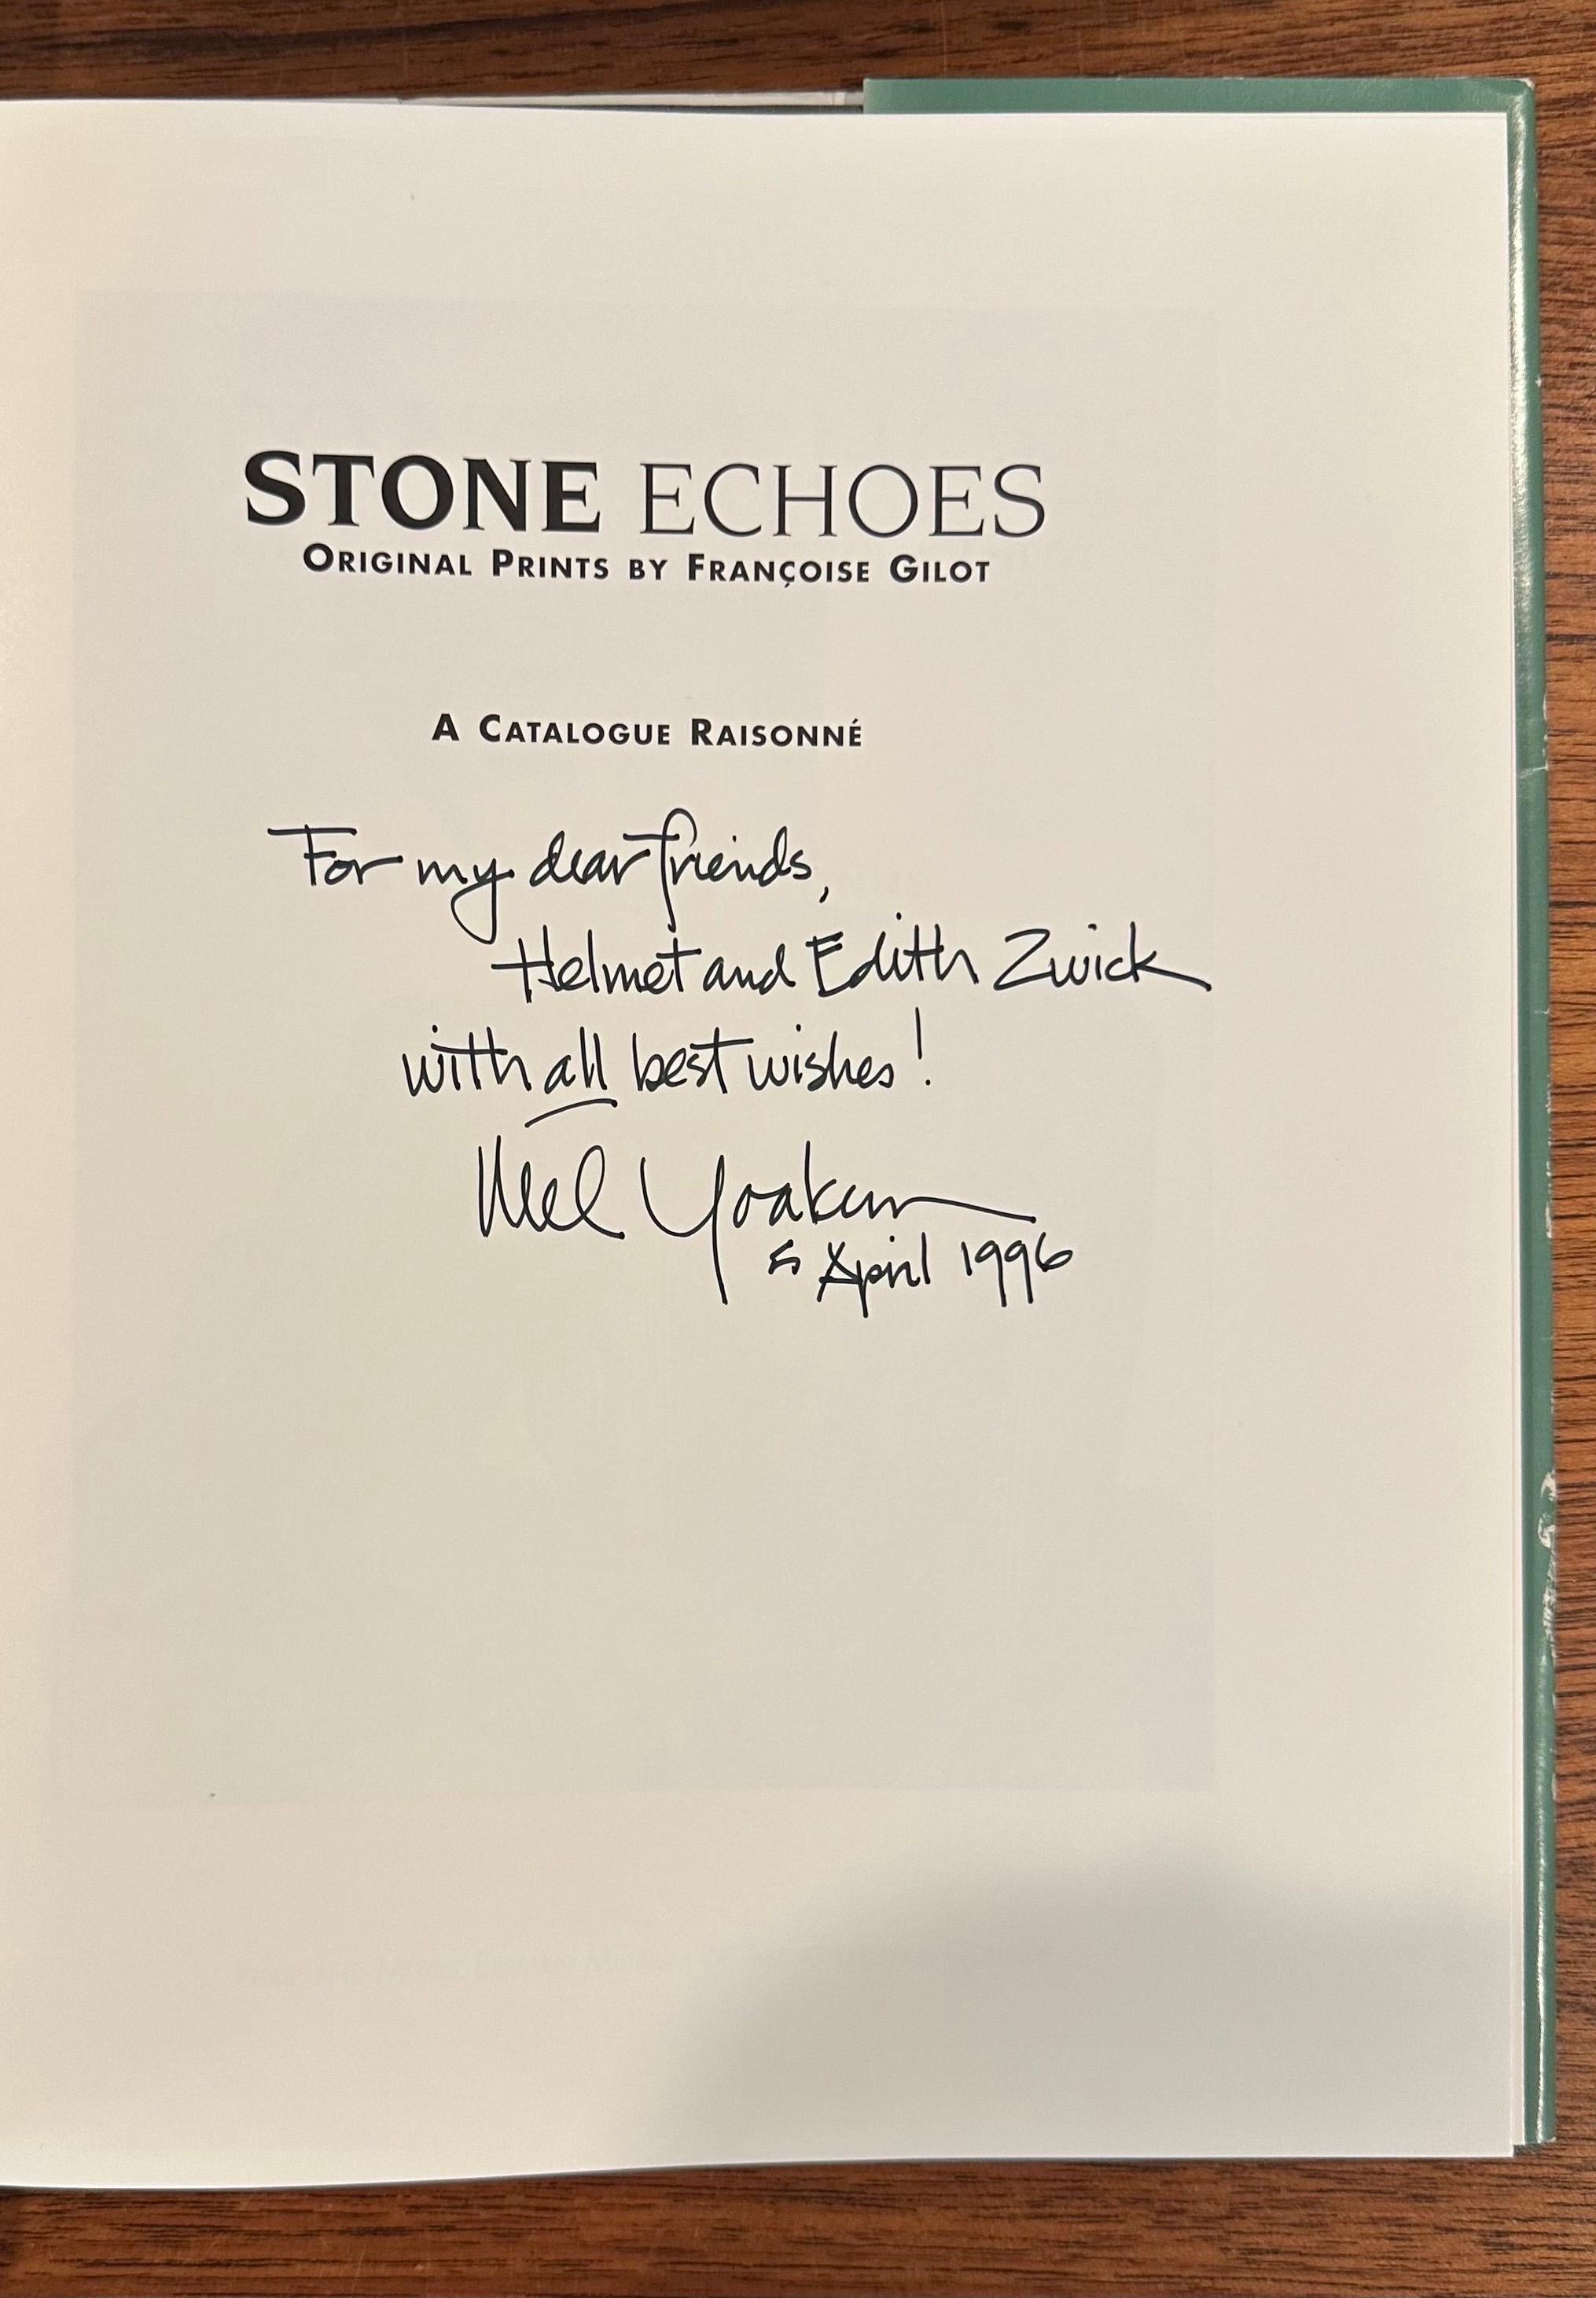 STONE ECHOES
ORIGINAL PRINTS BY FRANÇOISE GILOT
A CATALOGUE RAISONNÉ
For my dear friends,
Helmet and Edith Zwick
with all best wishes!
Mel Yoakum
5 April 1996